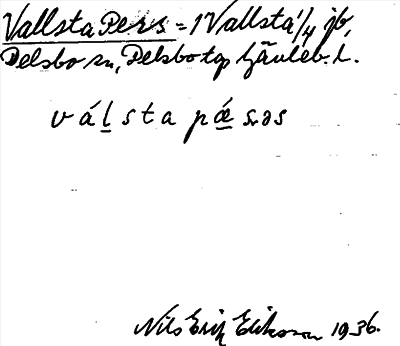 Vallsta Pers = 1 Vallsta 1/4 gb,
Delsbo sn, Delsbo tgp Gävleb. l.
v á l̲ s t a p ǽ̲ s. ə s
Nils Erik Eliksson 1936.